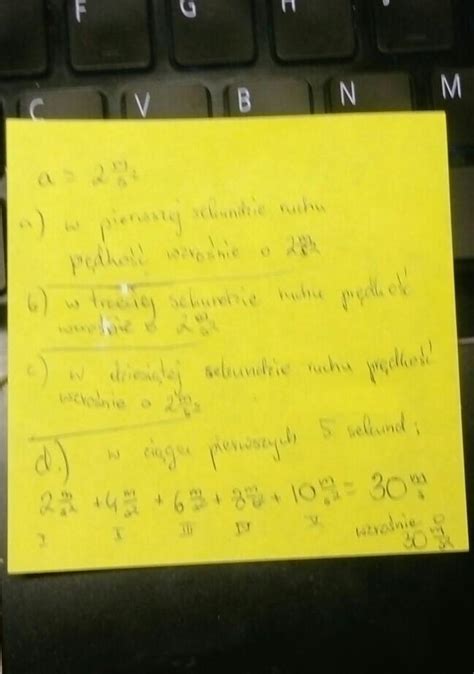 F G H
C V B N M
a = 2 m/s²
a) w pierwszej sekundzie ruchu
prędkość wzrośnie o 2 m/s²
b) w trzeciej sekundzie ruchu prędkość
wzrośnie o 2 m/s²
c) w dziesiątej sekundzie ruchu prędkość
wzrośnie o 2 m/s²
d.) w ciągu pierwszych 5 sekund;
2 m/s² + 4 m/s² + 6 m/s² + 8 m/s² + 10 m/s² = 30 m/s
I II III IV V
wzrośnie o
30 m/s²